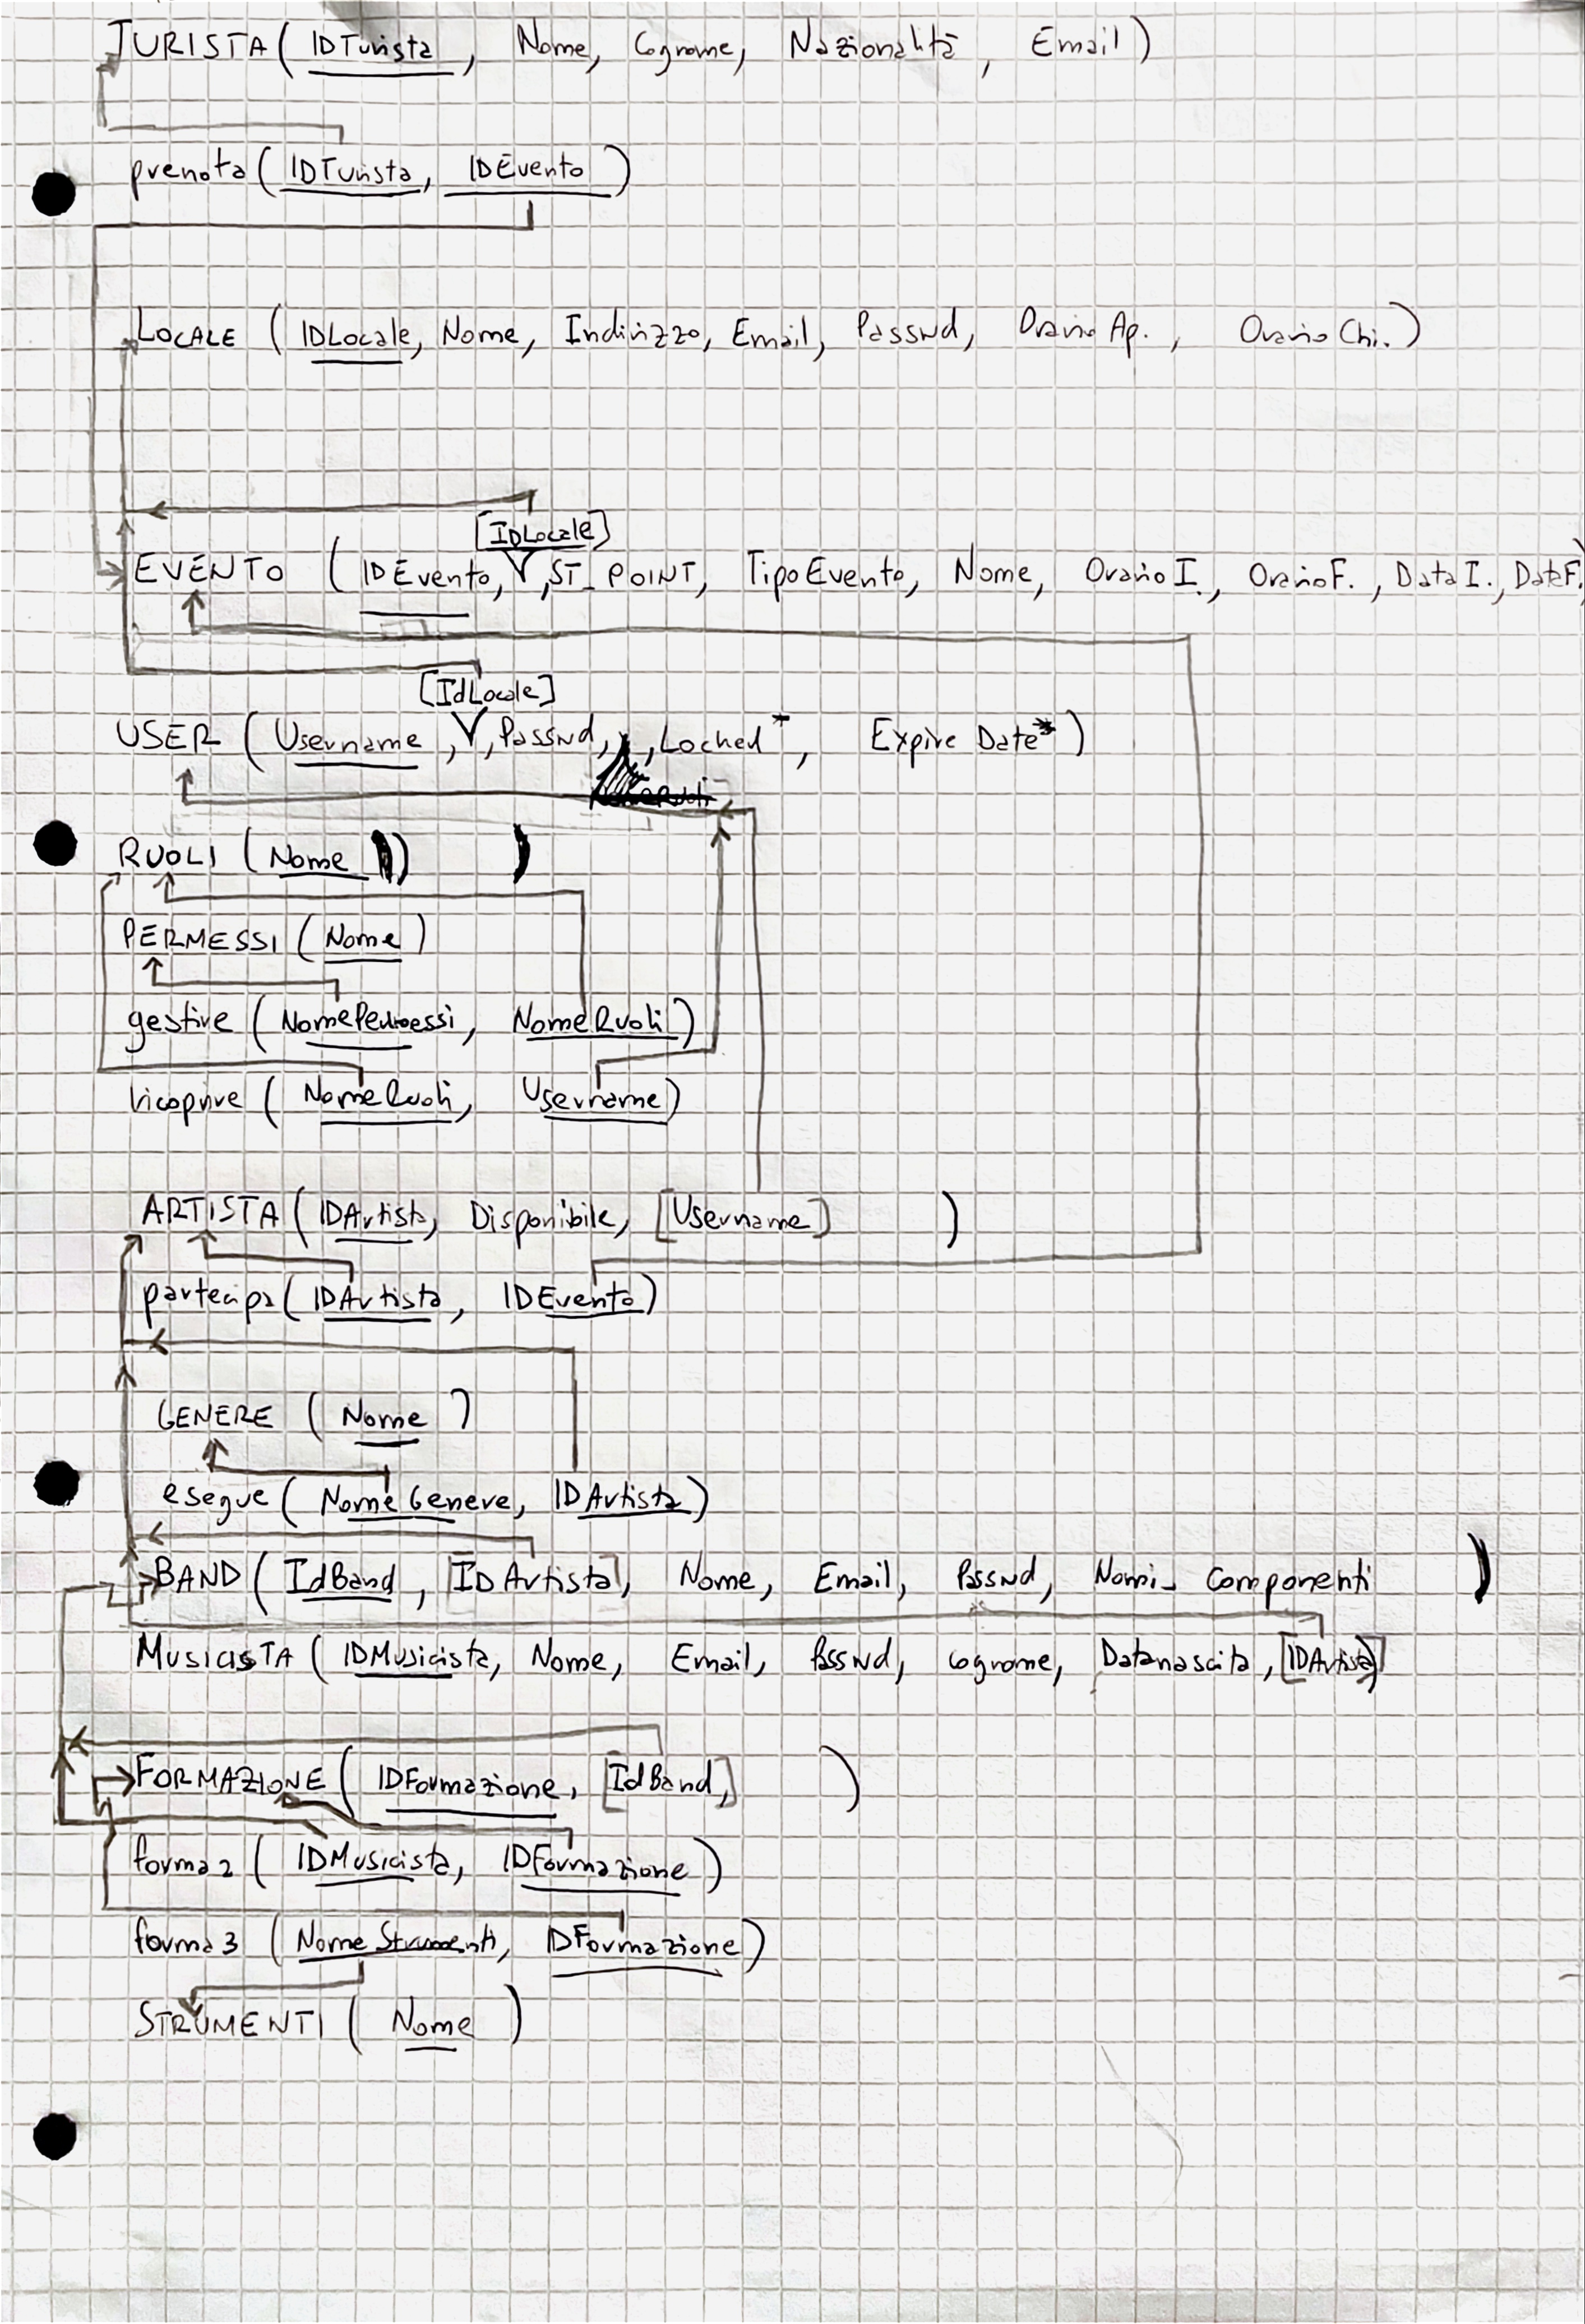 TURISTA( IDTurista, Nome, Cognome, Nazionalità, Email)
prenota( IDTurista, IDEvento )
LOCALE ( IDLocale, Nome, Indirizzo, Email, Passwd, OrarioAp., OrarioChi.)
[IDLocale]
EVENTO ( IDEvento, ,ST_POINT, TipoEvento, Nome, OrarioI., OrarioF., DataI., DataF.)
[IdLocale]
USER ( Username, ,Passwd, ,Locked*, Expire Date*)
RUOLI ( Nome )
PERMESSI ( Nome )
gestire ( NomePermessi, NomeRuoli )
ricoprire ( NomeRuoli, Username)
ARTISTA( IDArtista, Disponibile, [Username] )
partecipa( IDArtista, IDEvento)
GENERE ( Nome )
esegue ( NomeGenere, IDArtista)
BAND( IdBand, [IDArtista], Nome, Email, Passwd, Nomi_Componenti )
MUSICISTA ( IDMusicista, Nome, Email, Passwd, Cognome, Datanascita, [IDArtista])
FORMAZIONE( IDFormazione, [IdBand,] )
forma2 ( IDMusicista, IDFormazione )
forma3 ( NomeStrumenti, IDFormazione)
STRUMENTI ( Nome )